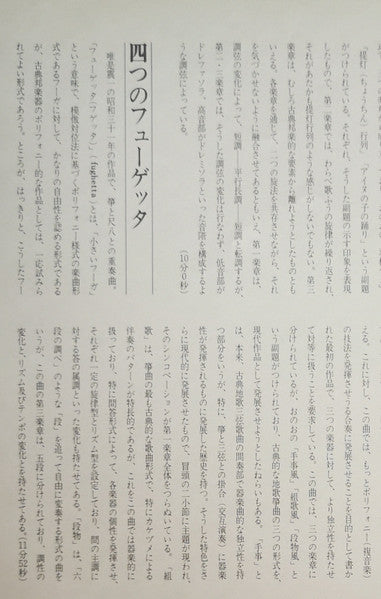 「提灯(ちょうちん)行列」「アイヌの子の踊り」という副題
がつけられている。それぞれ、そうした副題の示す印象を表現
したもので、第一楽章では、わらべ歌ふうの旋律が繰り返され、
それがあたかも提灯行列のような感じがしないでもない。第三
楽章は、むしろ古典邦楽的な要素から離れようとしたものとも
いえる。各楽章を通じて、二つの旋法を共存させながら、それ
を気づかせないように融合させてあるともいえ、第一楽章は、
調弦の変化によって、短調——平行長調——短調と転調するが、
第二・三楽章では、そうした調弦の変化は行なわず、低音部が
ドレファソラ、高音部がドレミソラといった音階を構成するよ
うな調弦によっている。
(10分0秒)
四つのフューゲッタ
唯是震一の昭和三十一年の作品で、箏と尺八との重奏曲。
「フューゲッタ(フゲッタ)」(fughetta)とは、「小さいフーガ」
という意味で、模倣対位法に基づくポリフォニー様式の楽曲形
式であるフーガに対して、かなりの自由性を認める形式である
が、古典邦楽器のポリフォニー的な作品としては、一応試みら
れてよい形式であろう。ところが、はっきりと、こうしたフー
える。これに対し、この曲では、もっとポリフォニー(複音楽)
の技法を発揮させうる合奏に発展させることを目的として書か
れた最初の作品で、三つの楽器に対して、より独立性を持たせ
て対等に扱うことを要求している。この曲では、三つの楽章に
分けられているが、おのおの「手事風」「組歌風」「段物風」と
いう副題がつけられており、古典的な地歌箏曲の三つの形式を、
現代作品として発展させようとしたねらいもある。「手事」と
は、本来、古典地歌三弦歌曲の間奏部で器楽曲的な独立性を持
つ部分をいうが、特に、箏と三弦との掛合(交互演奏)に器楽
性が発揮されるものに発展した歴史を持つ。そうした特色をさ
らに現代的に発展させたもので、冒頭の二小節に主題が現われ、
そのシンコペーションが第一楽章全体をつらぬいている。「組
歌」は、箏曲の最も古典的な歌曲形式で、特にカケヅメによる
伴奏のパターンが特長的であるが、これをこの曲では器楽的に
扱っており、特に問答形式によって、各楽器の個性を発揮させ、
それぞれ一定の旋律型とリズム型を設定しており、問の主調に
対する答の属調といった変化も持たせてある。「段物」は、「六
段の調べ」のような「段」を追って自由に変奏する形式の曲を
いうが、この曲の第三楽章は、五段に分けられており、調性の
変化と、リズム及びテンポの変化とを持たせてある。(11分52秒)